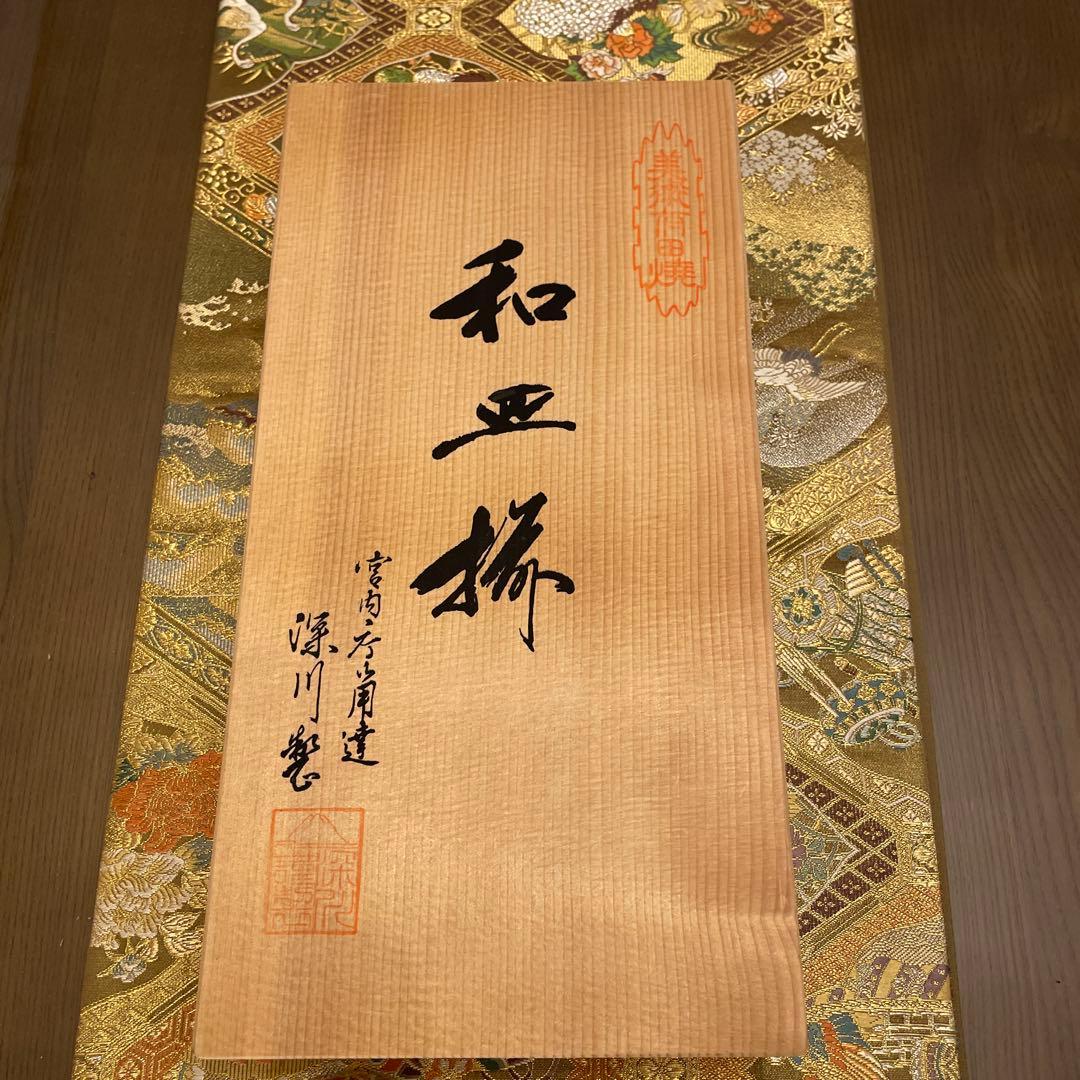 美術有田焼
和皿揃
宮内庁御用達
深川製
深川
謹製